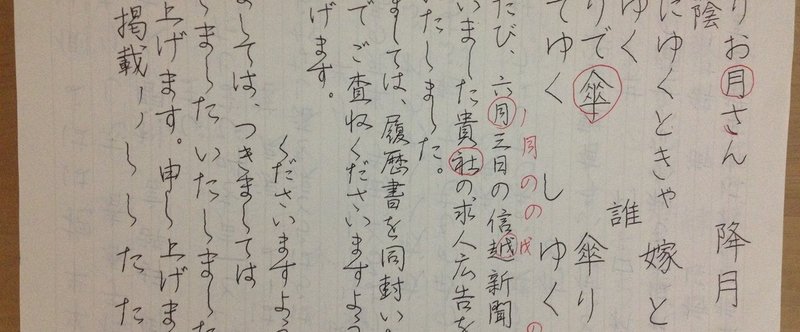 りお月さん　降月
陰
にゆくときゃ　嫁と
ゆく　誰
りで傘　傘り
てゆく　しゆく
月のの
たび、六月三日の信越新聞
いました貴社の求人広告を
たしました。
ましては、履歴書を同封い
でご査収くださいますよう
げます。
くださいますよう
ましては、つきましては
しましたいたしました
上げます。申し上げま
掲載ししたた